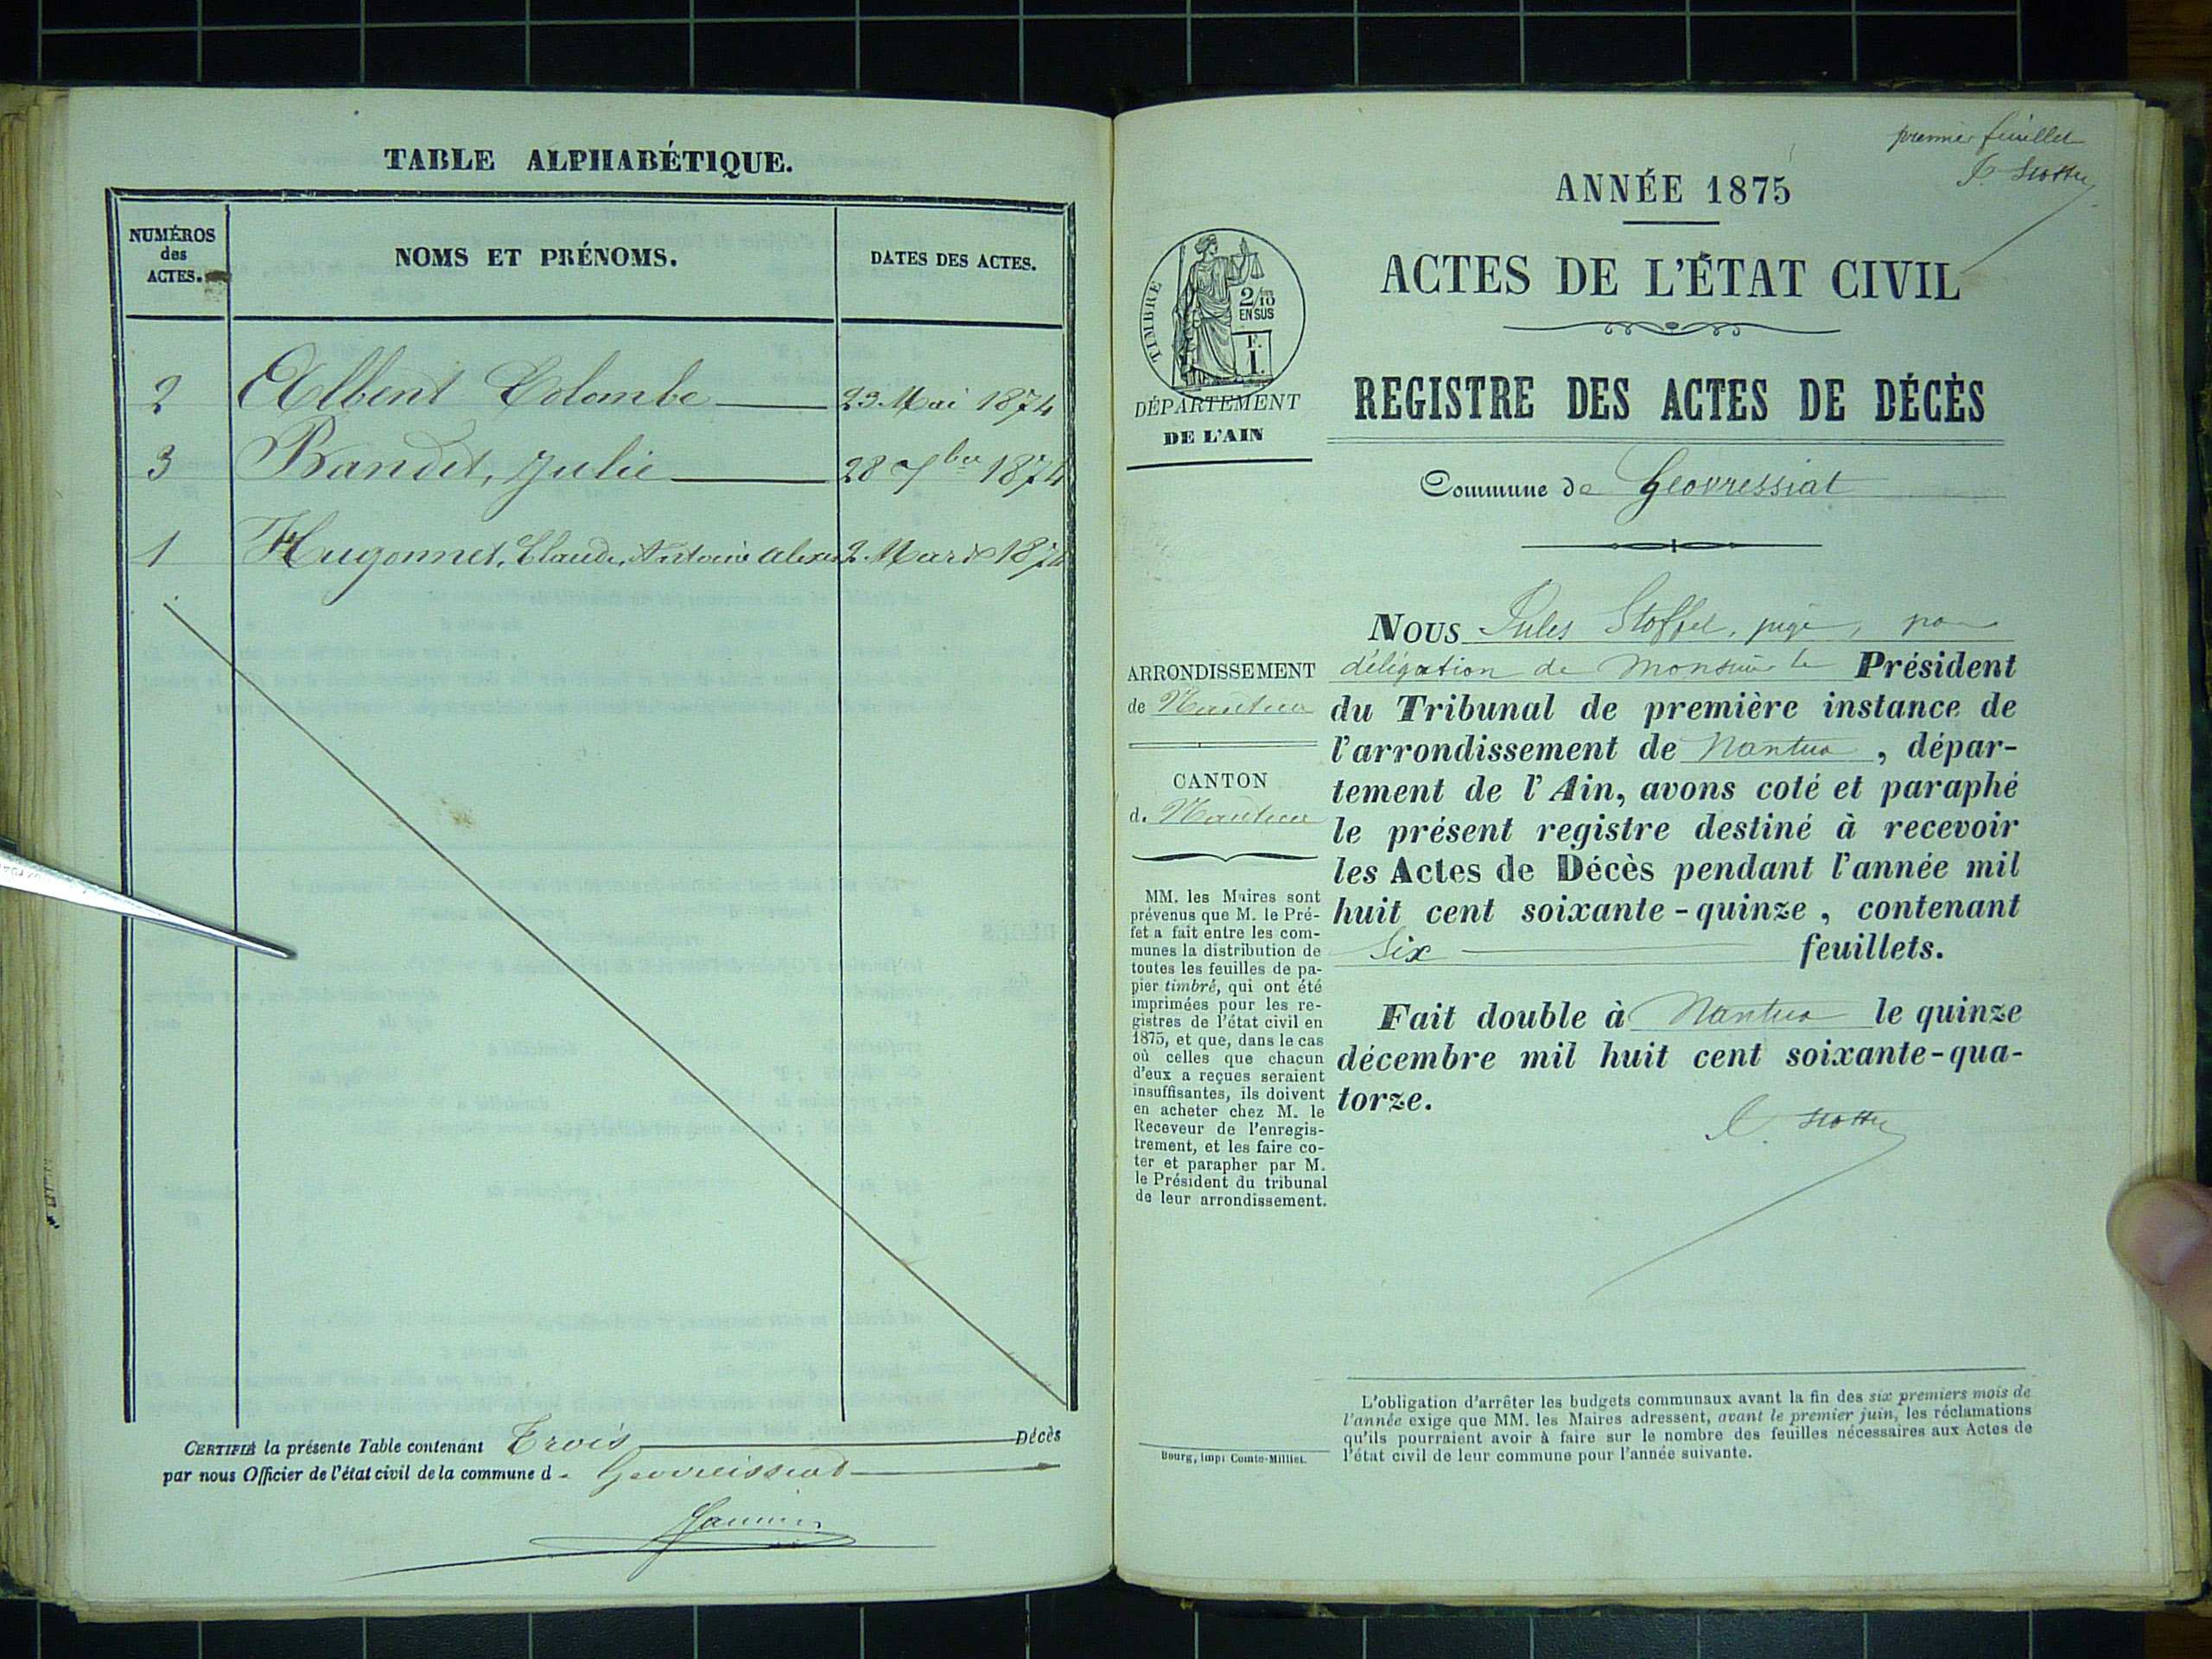 TABLE ALPHABÉTIQUE.
NUMÉROS
des
ACTES.
NOMS ET PRÉNOMS.
DATES DES ACTES.
2 Albent Colombe 23 Mai 1874
3 Bandet, Julie 28 7bre 1874
1 Hugonnet, Claude, Antoine 2 Mars 1874
CERTIFIÉ la présente Table contenant Trois Décès
par nous Officier de l'état civil de la commune d
premier feuillet
ANNÉE 1875
ACTES DE L'ÉTAT CIVIL
REGISTRE DES ACTES DE DÉCÈS
Commune de Geovressiat
TIMBRE
2/10
EN SUS
F.
1.
DÉPARTEMENT
DE L'AIN
ARRONDISSEMENT
de Nantua
CANTON
d. Nantua
MM. les Maires sont
prévenus que M. le Pré-
fet a fait entre les com-
munes la distribution de
toutes les feuilles de pa-
pier timbré, qui ont été
imprimées pour les re-
gistres de l'état civil en
1875, et que, dans le cas
où celles que chacun
d'eux a reçues seraient
insuffisantes, ils doivent
en acheter chez M. le
Receveur de l'enregis-
trement, et les faire co-
ter et parapher par M.
le Président du tribunal
de leur arrondissement.
Bourg, imp. Comte-Milliet.
NOUS Jules Stoffel, juge, par
délégation de Monsieur le Président
du Tribunal de première instance de
l'arrondissement de Nantua, dépar-
tement de l'Ain, avons coté et paraphé
le présent registre destiné à recevoir
les Actes de Décès pendant l'année mil
huit cent soixante-quinze, contenant
Six feuillets.
Fait double à Nantua le quinze
décembre mil huit cent soixante-qua-
torze.
L'obligation d'arrêter les budgets communaux avant la fin des six premiers mois de
l'année exige que MM. les Maires adressent, avant le premier juin, les réclamations
qu'ils pourraient avoir à faire sur le nombre des feuilles nécessaires aux Actes de
l'état civil de leur commune pour l'année suivante.